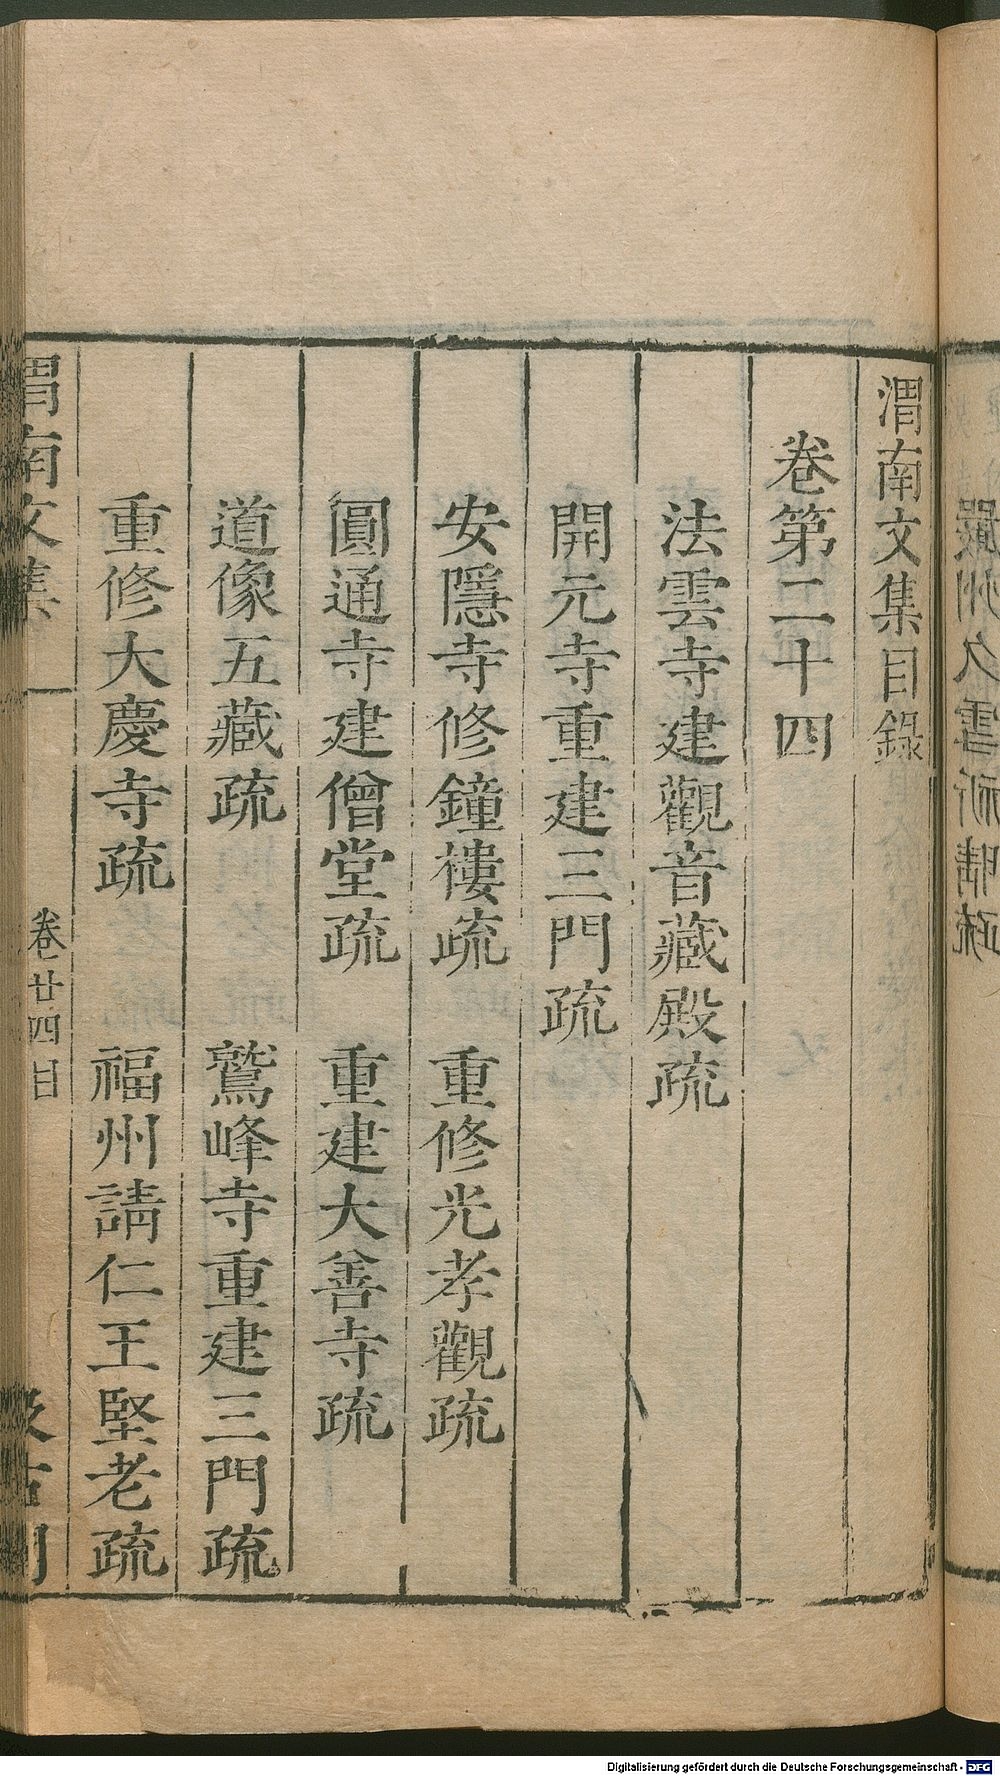 渭南文集目錄
卷第二十四
法雲寺建觀音藏殿疏
開元寺重建三門疏
安隱寺修鐘樓疏　重修光孝觀疏
圓通寺建僧堂疏　重建大善寺疏
道像五藏疏　鷲峰寺重建三門疏
重修大慶寺疏　福州請仁王堅老疏
渭南文集　卷廿四目
Digitalisierung gefördert durch die Deutsche Forschungsgemeinschaft - DFG